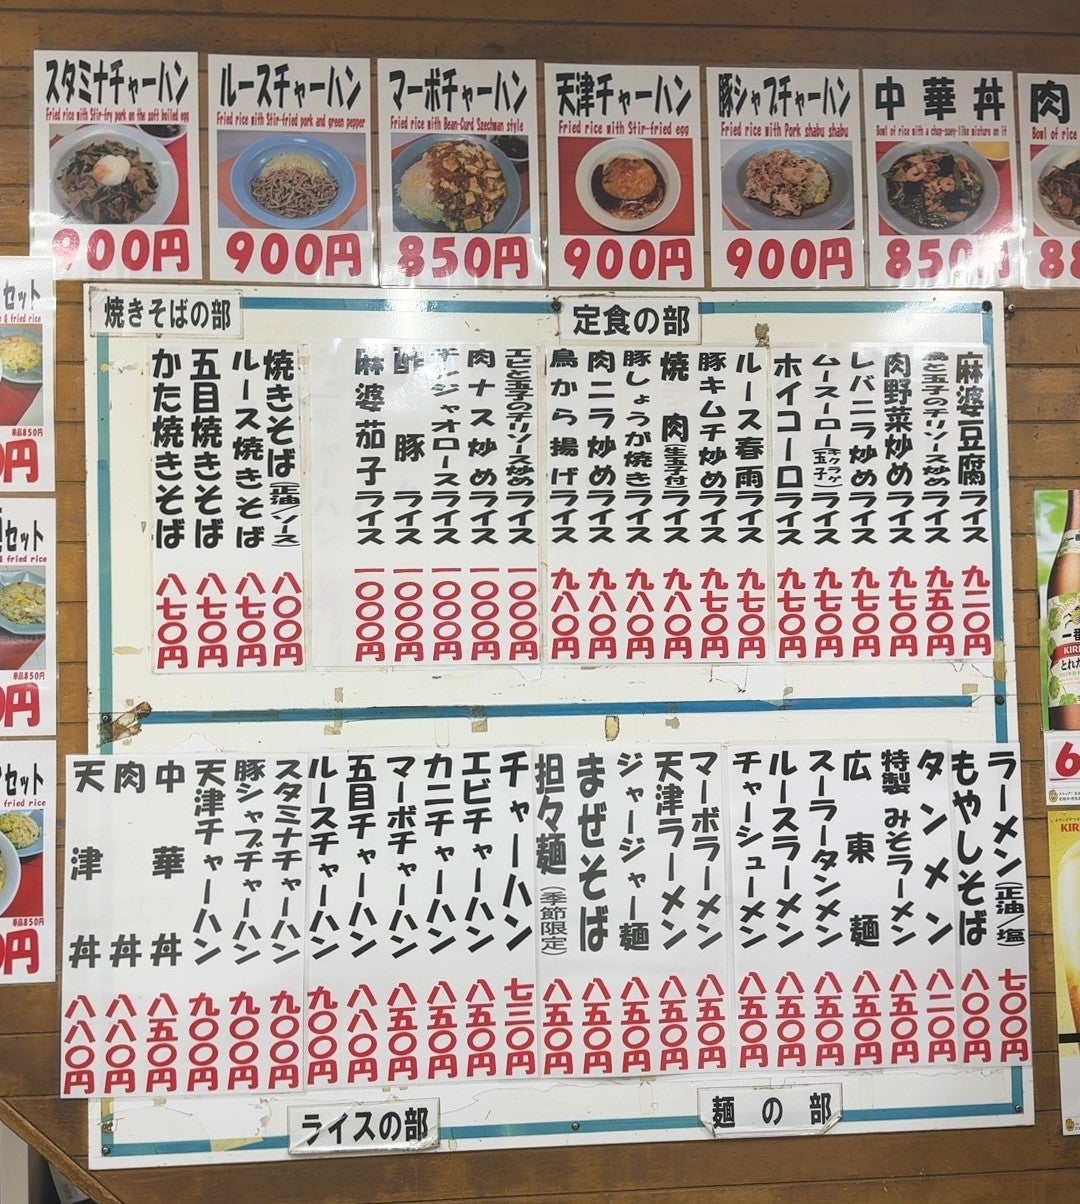 スタミナチャーハン
Fried rice with Stir-fry pork on the soft boiled egg
900円
ルースチャーハン
Fried rice with Stir-fried pork and green pepper
900円
マーボチャーハン
Fried rice with Bean-Curd Szechman style
850円
天津チャーハン
Fried rice with Stir-fried egg
900円
豚シャブチャーハン
Fried rice with Pork shabu shabu
900円
中華丼
Bowl of rice with a chop-suey-like mixture on it
850円
肉
Bowl of rice
88
セット
& fried rice
単品850円
0円
セット
& fried rice
単品850円
0円
セット
fried rice
単品850円
0円
定食の部
麻婆豆腐ライス 九二〇円
玉子のチリソース炒めライス 九五〇円
肉野菜炒めライス 九七〇円
レバニラ炒めライス 九七〇円
ムースーロー(キクラゲ玉子)ライス 九七〇円
ホイコーロライス 九七〇円
ルース春雨ライス 九七〇円
豚キムチ炒めライス 九七〇円
焼肉(生玉子付)ライス 九八〇円
豚しょうが焼きライス 九八〇円
肉ニラ炒めライス 九八〇円
鳥から揚げライス 九八〇円
エビと玉子のチリソース炒めライス 一〇〇〇円
肉ナス炒めライス 一〇〇〇円
チンジャオロースライス 一〇〇〇円
酢豚ライス 一〇〇〇円
麻婆茄子ライス 一〇〇〇円
焼きそばの部
焼きそば(正油/ソース) 八〇〇円
ルース焼きそば 八七〇円
五目焼きそば 八七〇円
かた焼きそば 八七〇円
ラーメン(正油/塩) 七〇〇円
もやしそば 八〇〇円
タンメン 八二〇円
特製みそラーメン 八五〇円
広東麺 八五〇円
スーラータンメン 八五〇円
ルースラーメン 八五〇円
チャーシューメン 八五〇円
マーボラーメン 八五〇円
天津ラーメン 八五〇円
ジャージャー麺 八五〇円
まぜそば 八五〇円
担々麺(季節限定) 八五〇円
チャーハン 七三〇円
エビチャーハン 八五〇円
カニチャーハン 八五〇円
マーボチャーハン 八五〇円
五目チャーハン 八八〇円
ルースチャーハン 九〇〇円
スタミナチャーハン 九〇〇円
豚シャブチャーハン 九〇〇円
天津チャーハン 九〇〇円
中華丼 八五〇円
肉丼 八八〇円
天津丼 八八〇円
麺の部
ライスの部
一番
KIRI
とれた
6
KIR